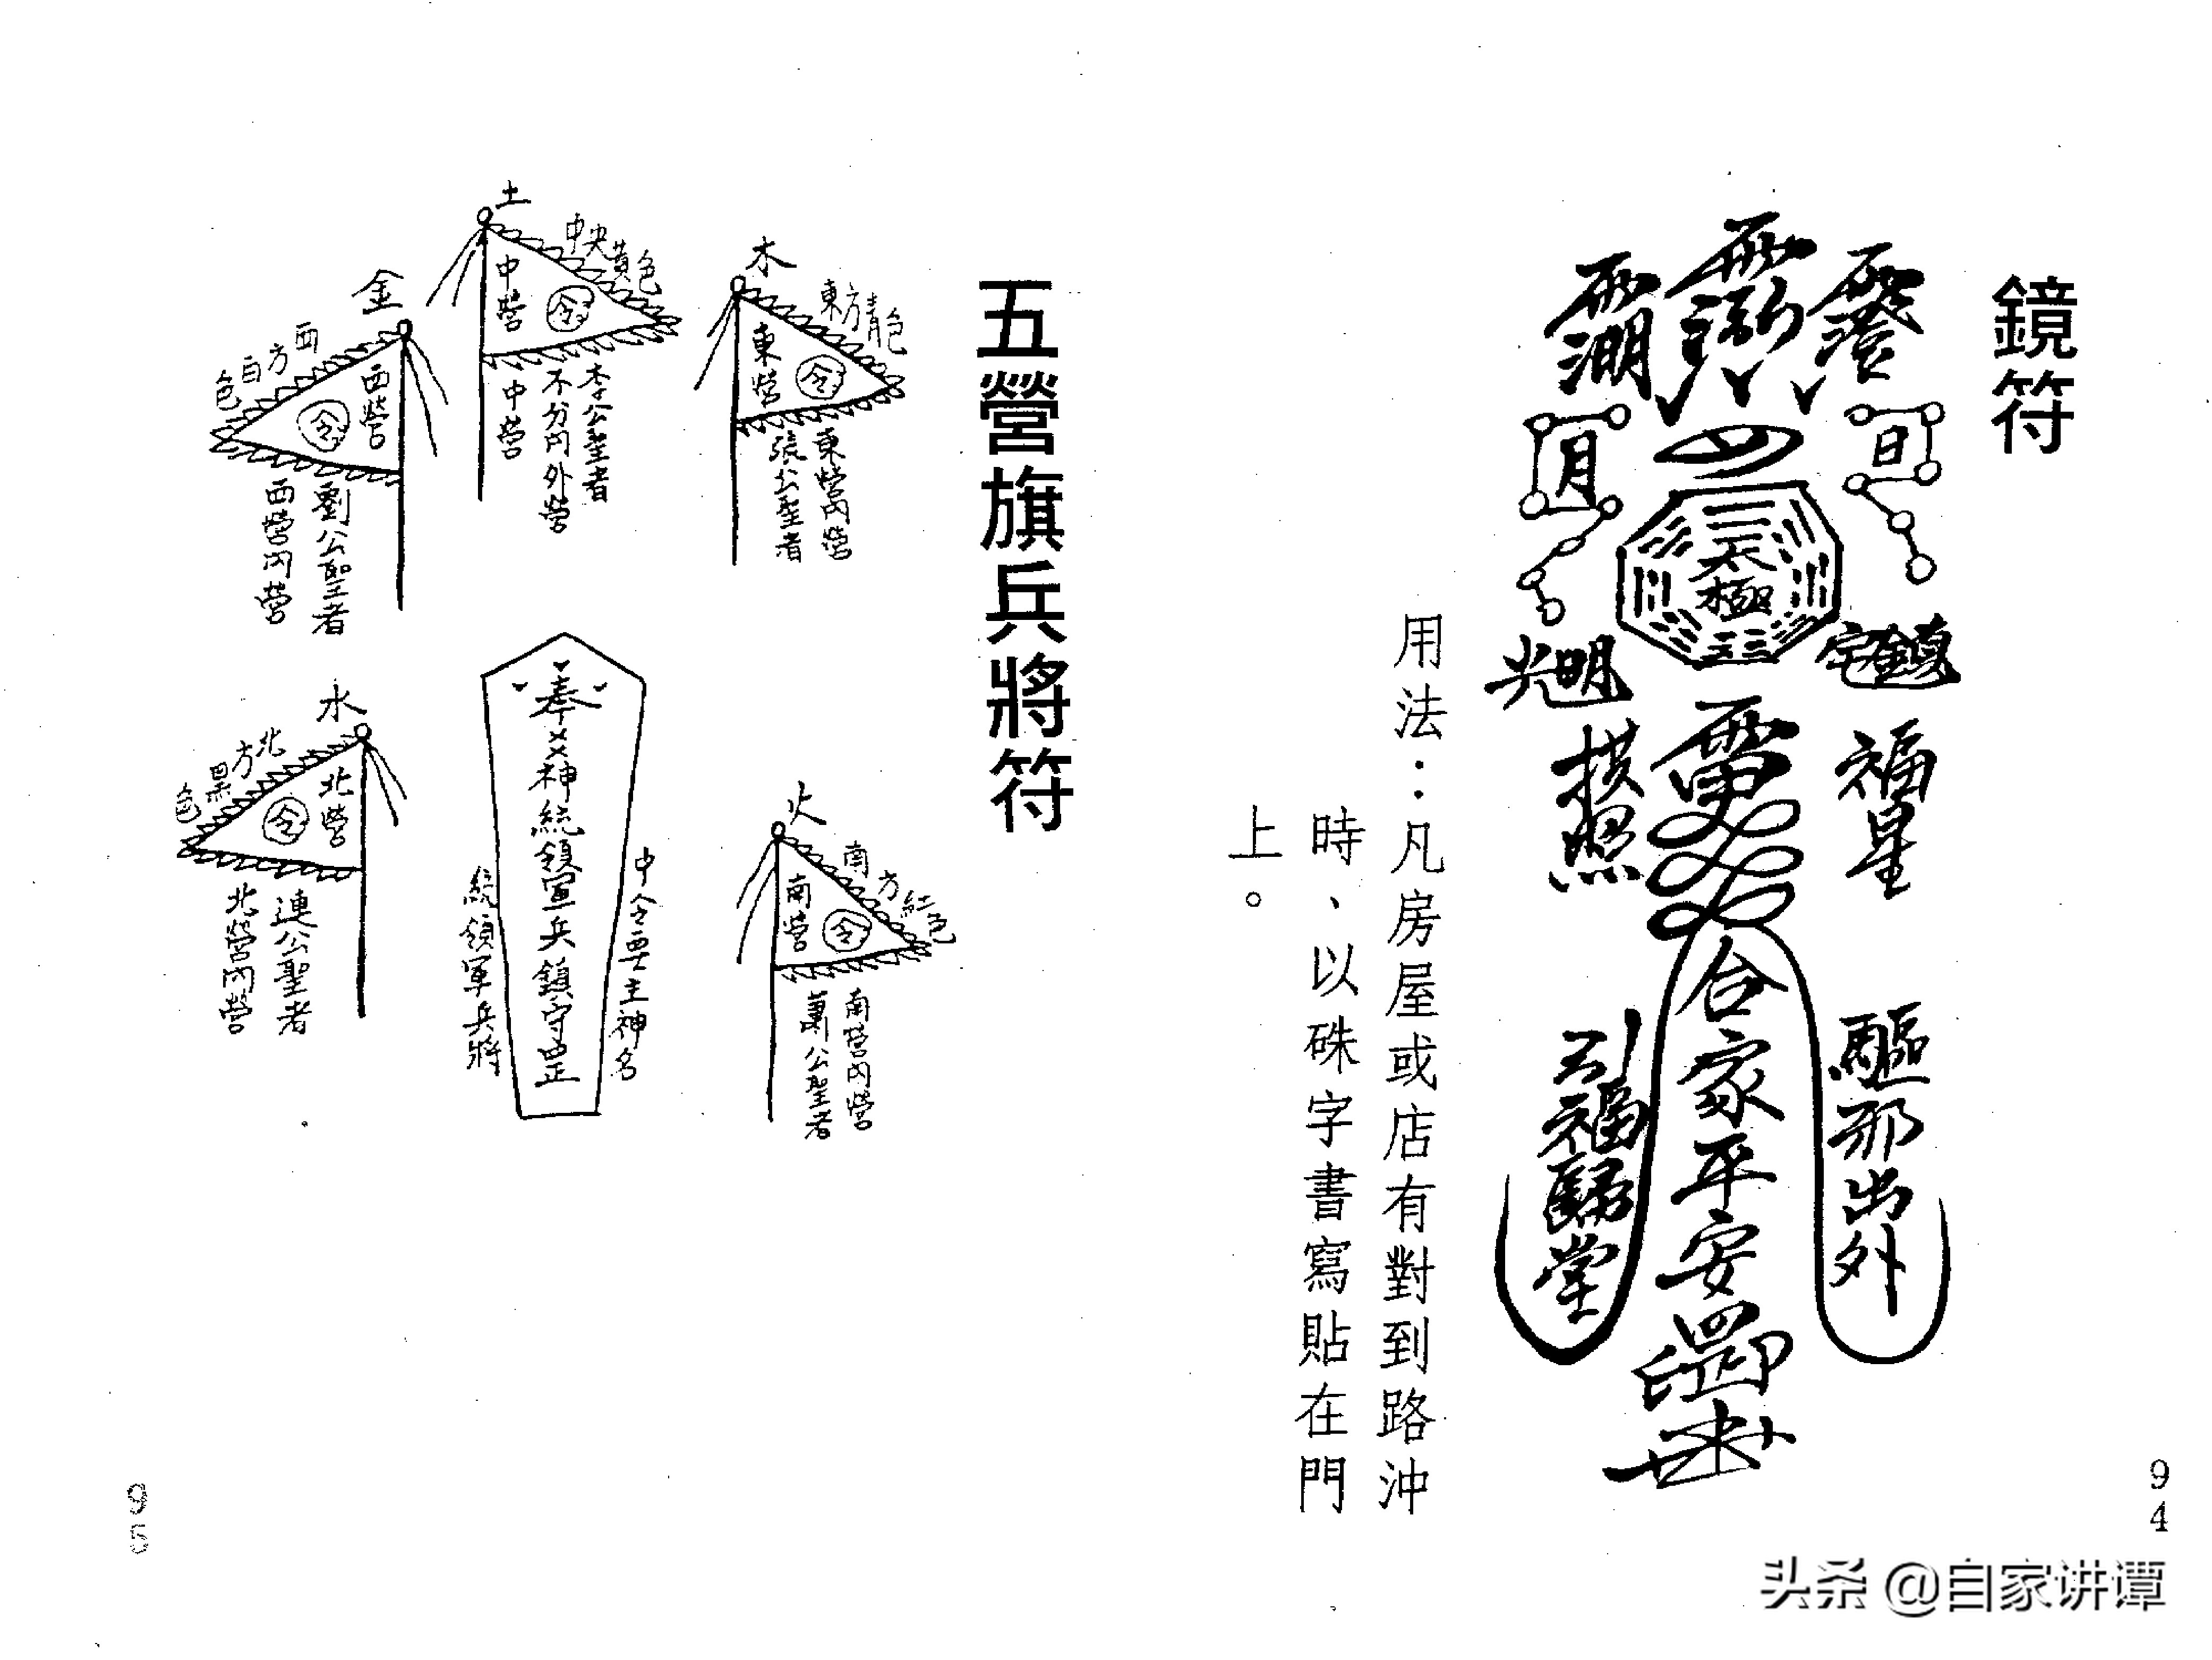 鏡符
鎮宅
福星
驅邪出外
日
太極
合家平安罡印
月
光明
拱照
引福歸堂
用法：凡房屋或店有對到路沖
時、以硃字書寫貼在門
上。
94
五營旗兵將符
木
東方青色
東營
令
東營內營
張公聖者
土
中央黃色
中營
令
李公聖者
不分內外營
中營
金
西方白色
西營
令
劉公聖者
西營內營
火
南方紅色
南營
令
南營內營
蕭公聖者
中令要主神名
奉××神統領軍兵鎮守罡
統領軍兵將
水
北方黑色
北營
令
連公聖者
北營內營
95
头条 @自家讲谭